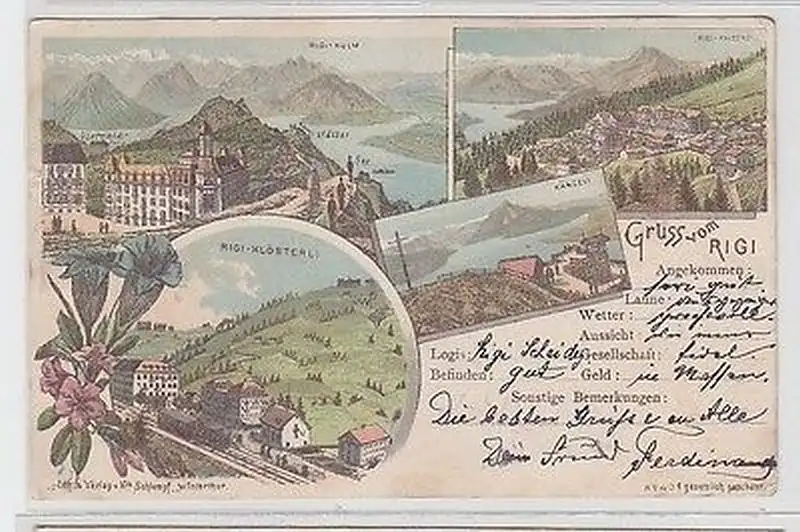 RIGI-KULM
RIGI-KALTBAD
KÄNZELI
RIGI-KLÖSTERLI
Gruss vom
RIGI
Angekommen: sehr gut
Laune:
Wetter:
Aussicht
Logis: Rigi Scheidegg Gesellschaft: fidel
Befinden: gut Geld: in Massen.
Sonstige Bemerkungen:
Die besten Grüsse an Alle
Dein Freund Ferdinand
Lith. & Verlag v. Wm Schlumpf, Winterthur.
gesetzlich geschützt.